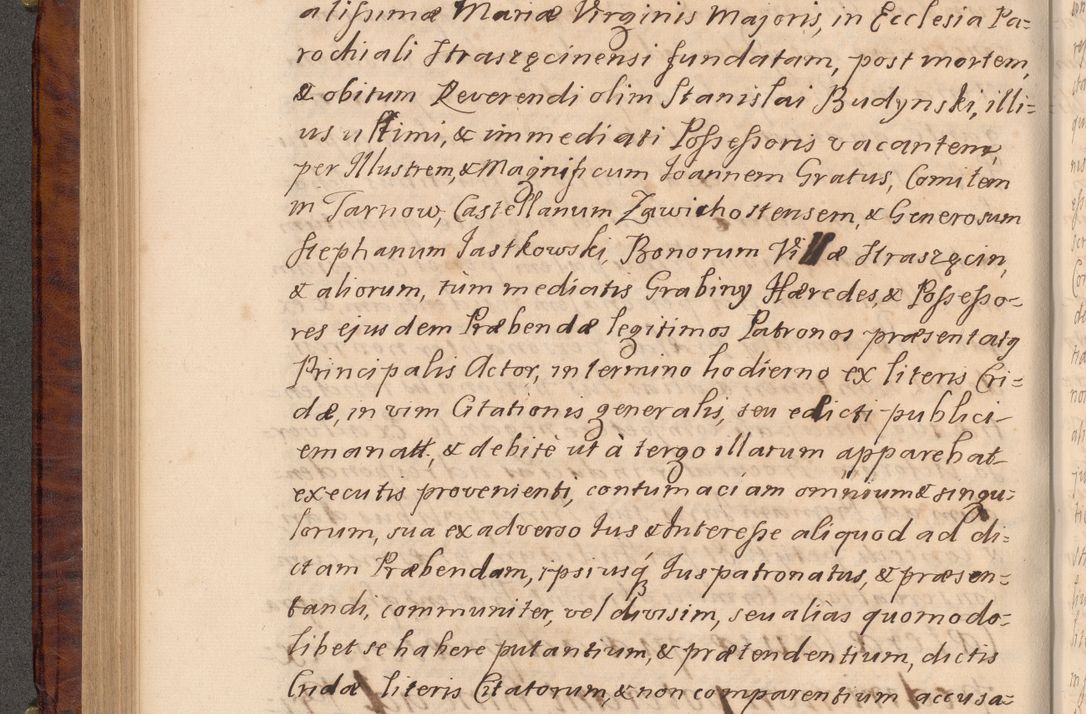 atissimæ Mariæ Virginis Majoris, in Ecclesia Pa=
rochiali Straszęcinensi fundatam, post mortem,
& obitum Reverendi olim Stanislai Budynski, illi=
us ultimi, & immediati Possessoris vacantem,
per Illustrem, & Magnificum Joannem Gratus, Comitem
in Tarnow, Castellanum Zawichostensem, & Generosum
Stephanum Jastkowski, Bonorum Villæ Straszęcin,
& aliorum, tùm mediatis Grabiny Hæredes, & Possesso=
res ejusdem Præbendæ legitimos Patronos præsentatq
Principalis Actor, in termino hodierno ex literis Cri=
dæ, in vim Citationis generalis, seu edicti publici
emanatt, & debitè ut à tergo illarum apparebat
executis provenienti, contumaciam omnium & singu=
lorum, sua ex adverso Jus & Interesse aliquod ad di=
ctam Præbendam, ipsiusq́ Juspatronatus, & præsen=
tandi, communiter, vel divisim, seu aliàs quomodo=
libet se habere putantium, & prætendentium, dictis
Cridæ literis Citatorum, & non comparentium accusa=